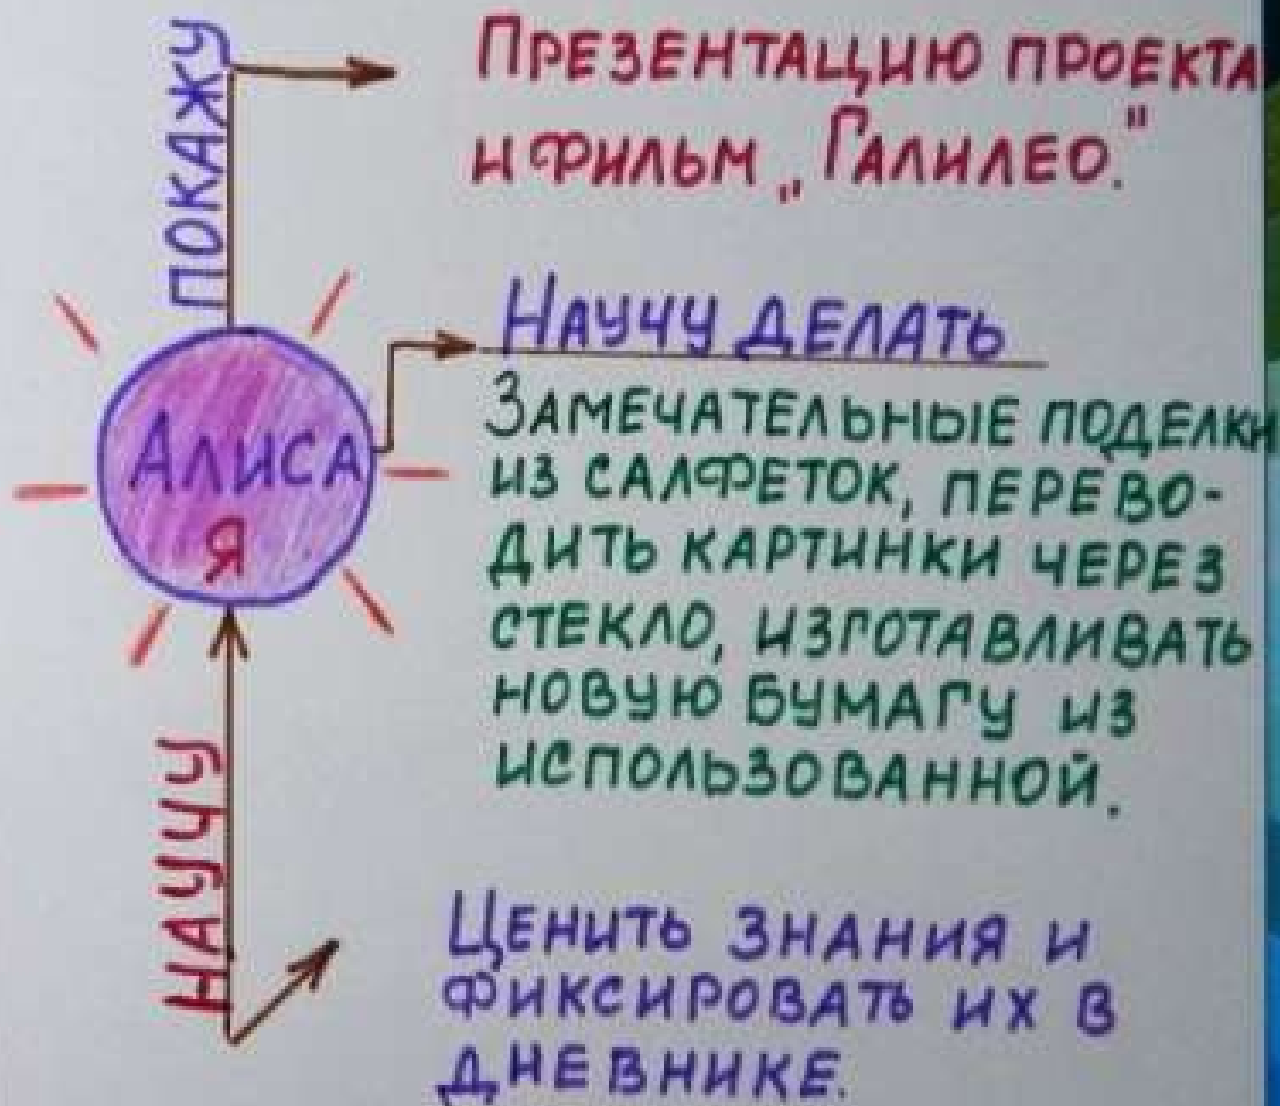 ПОКАЖУ
ПРЕЗЕНТАЦИЮ ПРОЕКТА
И ФИЛЬМ „ГАЛИЛЕО."
НАУЧУ ДЕЛАТЬ
ЗАМЕЧАТЕЛЬНЫЕ ПОДЕЛКИ
ИЗ САЛФЕТОК, ПЕРЕВО-
ДИТЬ КАРТИНКИ ЧЕРЕЗ
СТЕКЛО, ИЗГОТАВЛИВАТЬ
НОВУЮ БУМАГУ ИЗ
ИСПОЛЬЗОВАННОЙ.
АЛИСА
Я
НАУЧУ
ЦЕНИТЬ ЗНАНИЯ И
ФИКСИРОВАТЬ ИХ В
ДНЕВНИКЕ.